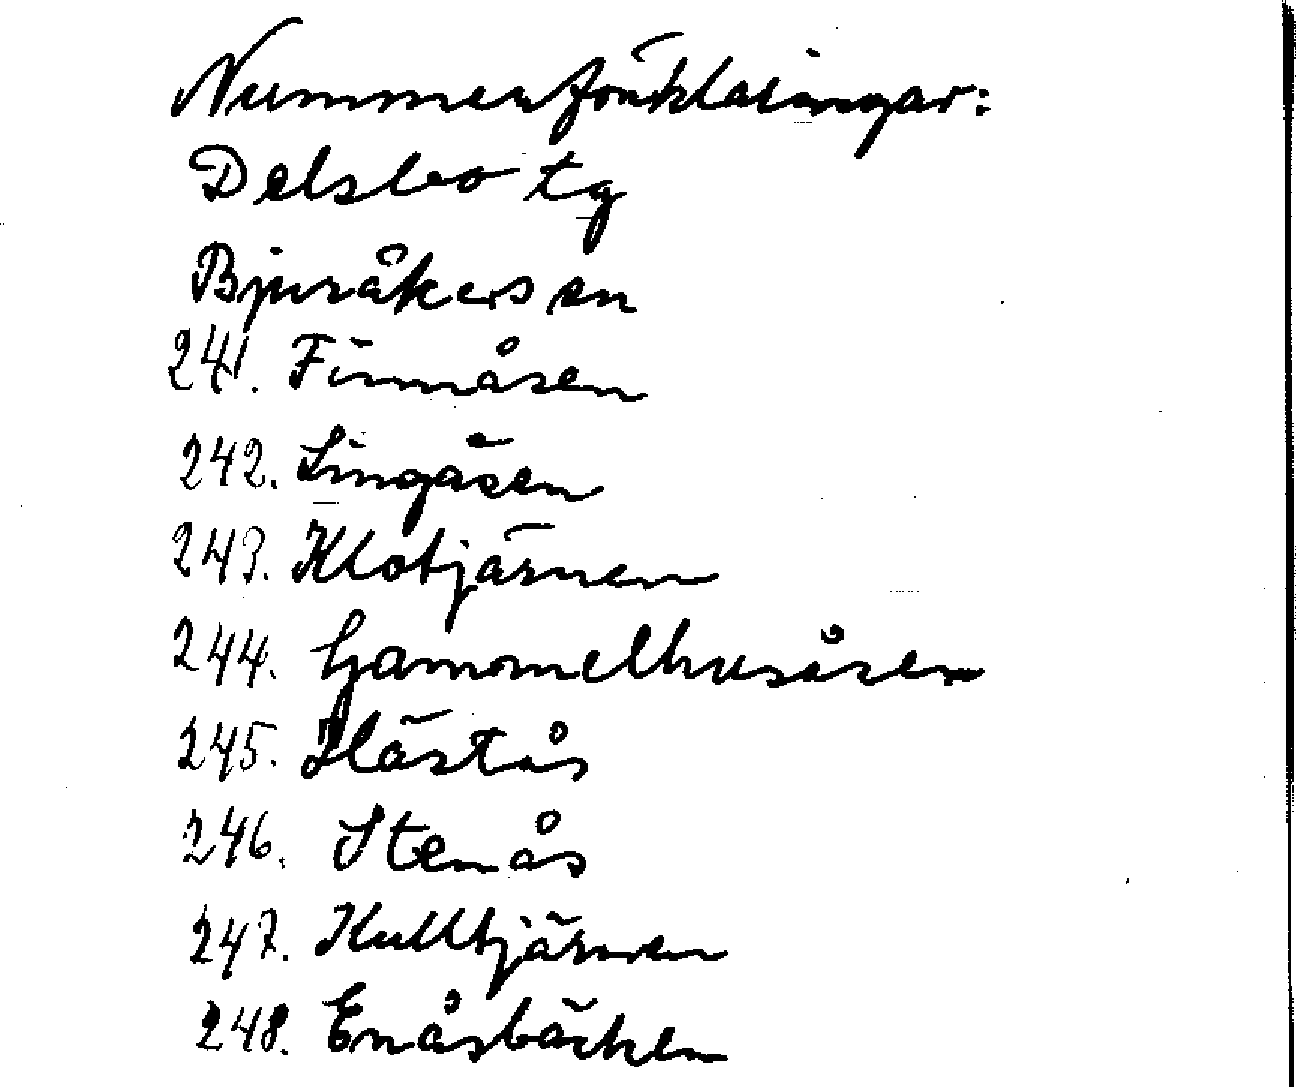 Nummerförklaringar:
Delsbo tg
Bjuråkers sn
241. Finnåsen
242. Lingåsen
243. Klotjärnen
244. Gammelhusåsen
245. Hästås
246. Stenås
247. Kulltjärnen
248. Enåsbäcken